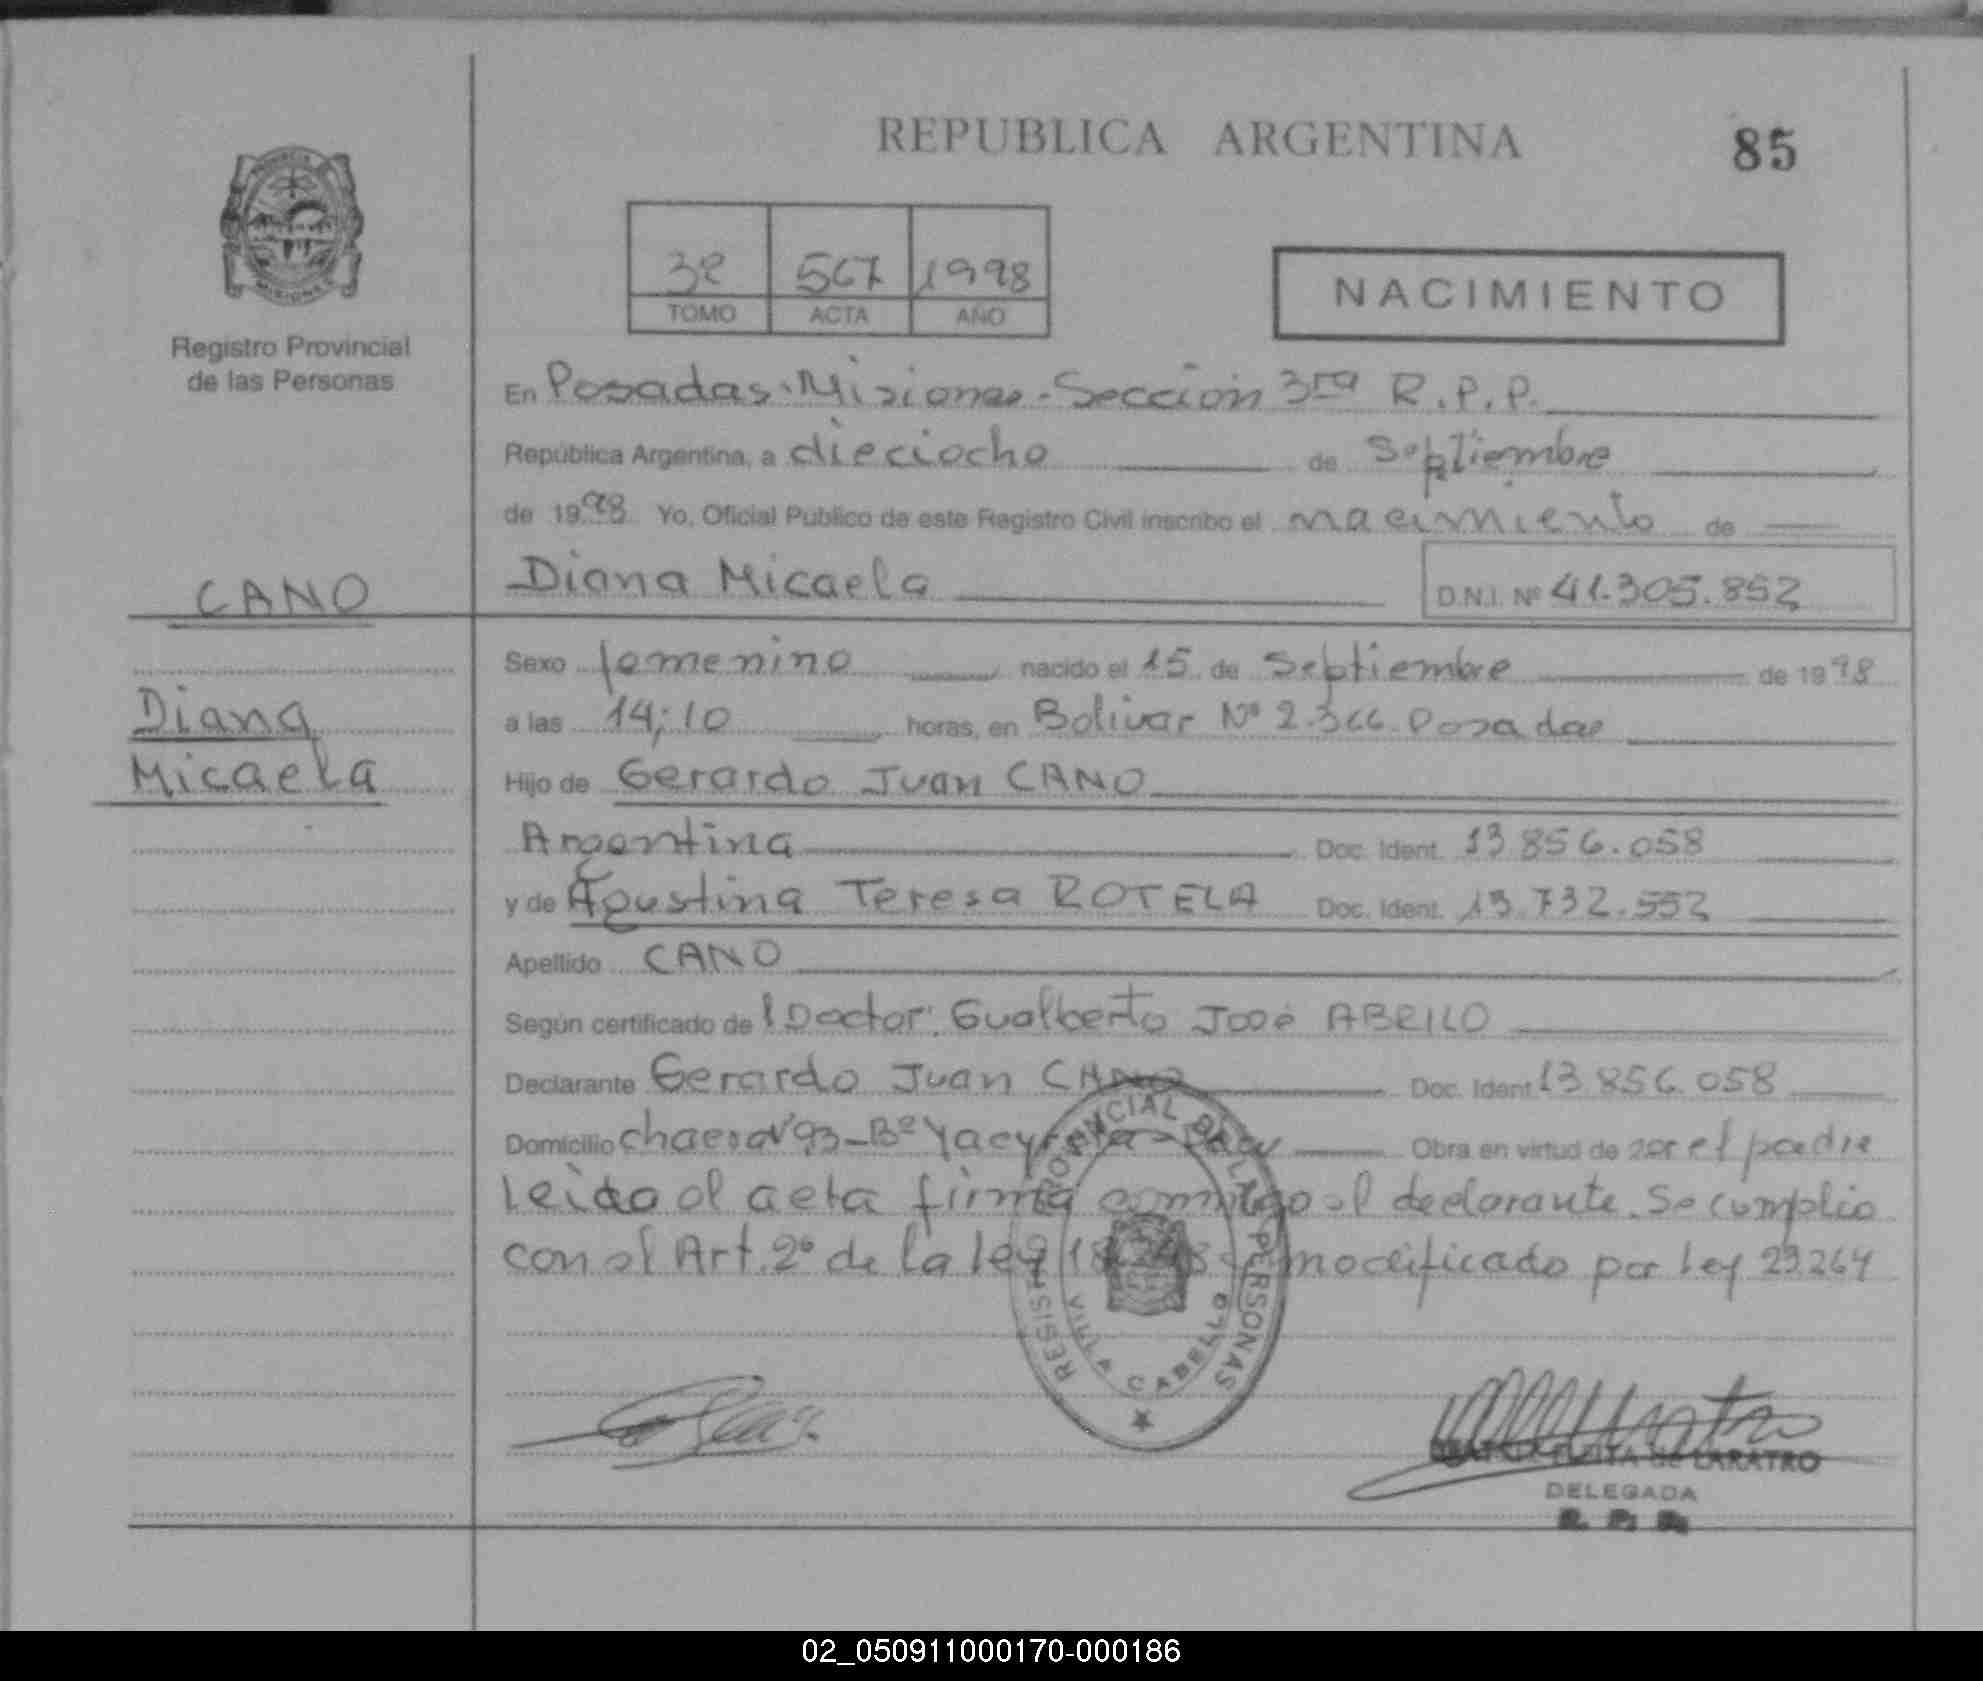 REPUBLICA ARGENTINA
85
PROVINCIA
MISIONES
Registro Provincial
de las Personas
3º 567 1998
TOMO ACTA AÑO
NACIMIENTO
En Posadas-Misiones-Sección 3ra R.P.P.
República Argentina, a dieciocho de Septiembre
de 1998 Yo, Oficial Público de este Registro Civil inscribo el nacimiento de
CANO
Diana Micaela
D.N.I. Nº 41.305.852
Sexo femenino nacido el 15 de Septiembre de 1998
Diana
a las 14;10 horas, en Bolivar Nº 2.366 Posadas
Micaela
Hijo de Gerardo Juan CANO
Argentina Doc. Ident. 13.856.058
y de Agustina Teresa ROTELA Doc. Ident. 13.732.552
Apellido CANO
Según certificado del Doctor: Gualberto José ABRILO
Declarante Gerardo Juan CANO Doc. Ident. 13.856.058
Domicilio chacra 93-Bº Yacyreta- Obra en virtud de ser el padre
Leida el acta firma conmigo el declarante. Se cumplio
con el Art. 2º de la ley 18.248- modificado por Ley 23.264
REGISTRO PROVINCIAL DE LAS PERSONAS
VILLA CABELLO
de LARATRO
DELEGADA
02_050911000170-000186